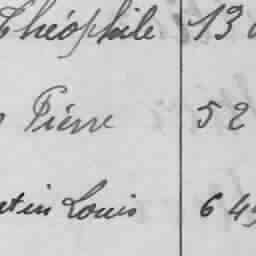 Théophile 13
Pierre 52
Louis 64